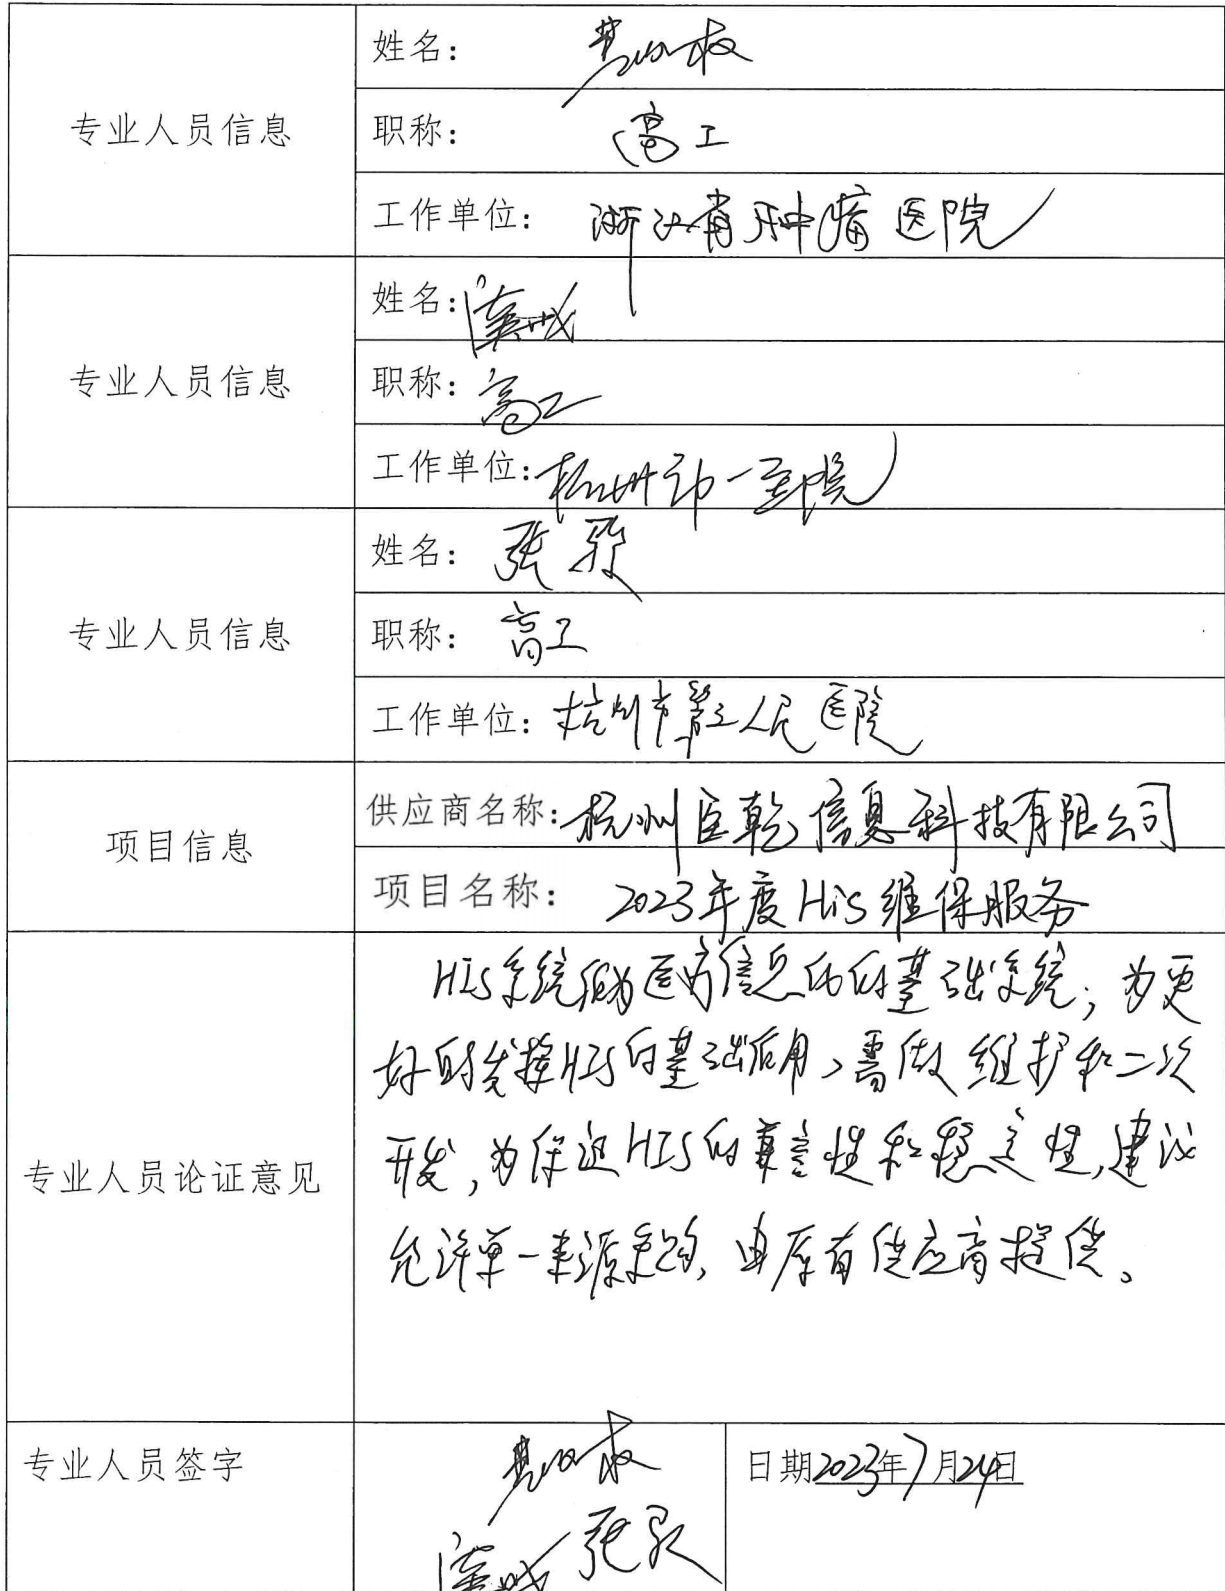 专业人员信息
姓名：
职称： 高工
工作单位： 浙江省肿瘤医院
专业人员信息
姓名：
职称： 高工
工作单位： 杭州市一医院
专业人员信息
姓名： 张
职称： 高工
工作单位： 杭州市第三人民医院
项目信息
供应商名称： 杭州臣乾信息科技有限公司
项目名称： 2023年度His维保服务
专业人员论证意见
HIS系统做为医疗信息化的基础系统，为更
好的发挥HIS的基础作用，需做维护和二次
开发，为保证HIS的兼容性和稳定性，建议
允许单一来源采购，由原有供应商提供。
专业人员签字
张
日期2023年7月24日